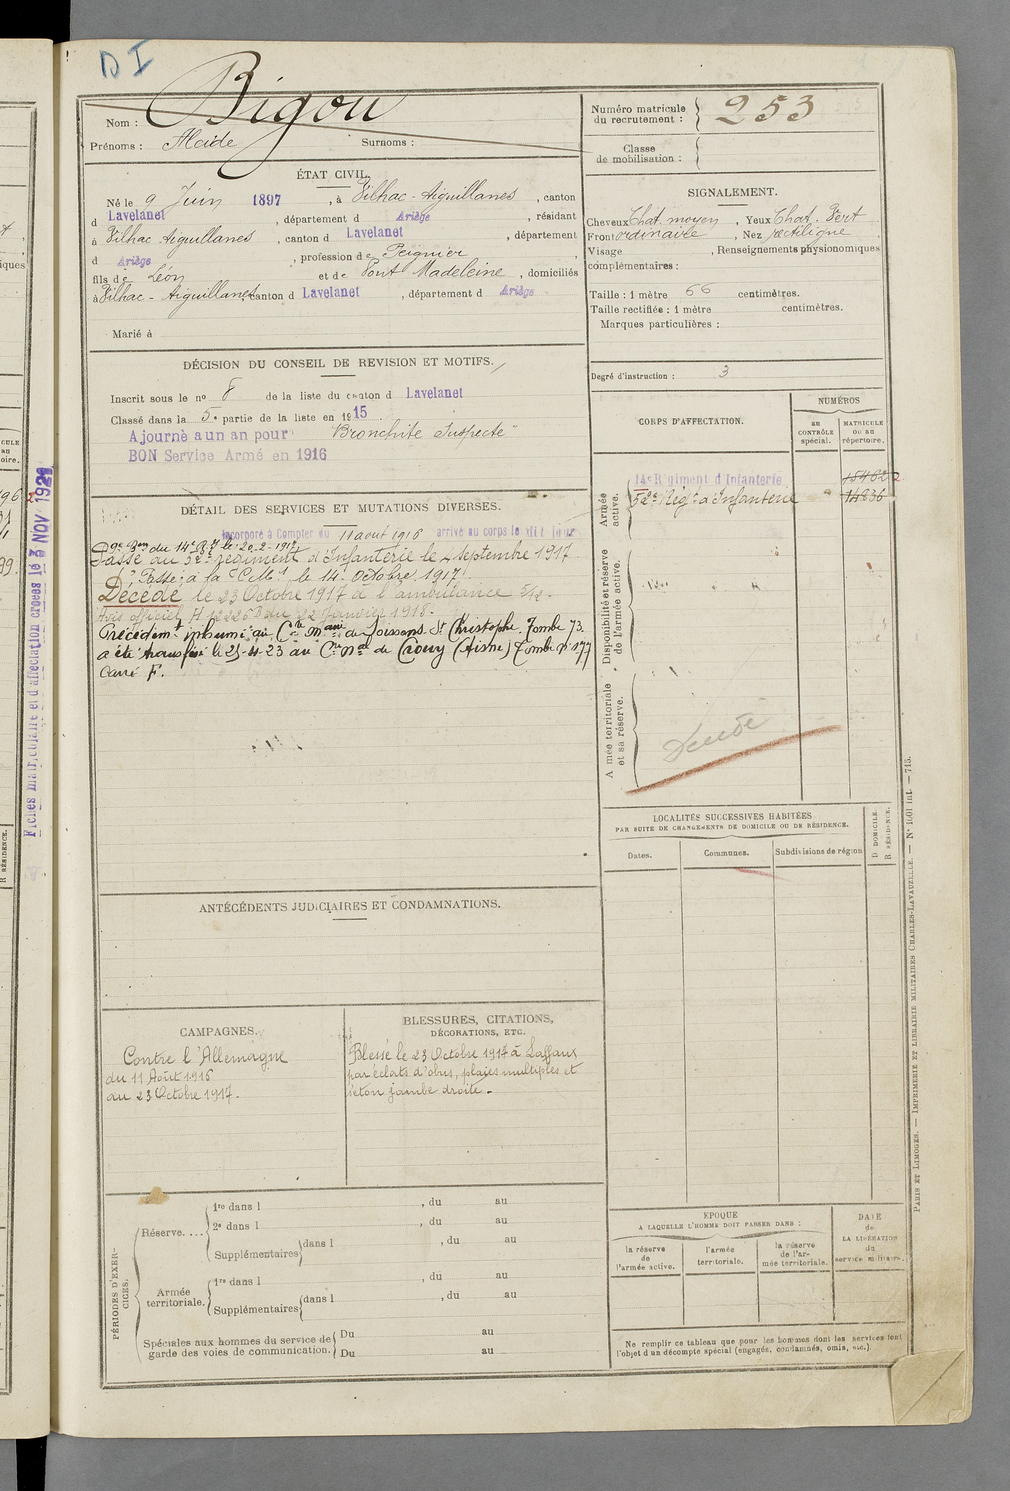 D I
Nom : Bigou
Prénoms : Alcide Surnoms :
Numéro matricule
du recrutement : 253
Classe
de mobilisation :
ÉTAT CIVIL.
Né le 9 Juin 1897, à Vilhac-Aiguillanes, canton
d Lavelanet, département d Ariège, résidant
à Vilhac Aiguillanes, canton d Lavelanet, département
d Ariège, profession de Peignier,
fils de Léon et de Pont Madeleine, domiciliés
à Vilhac-Aiguillanes canton d Lavelanet, département d Ariège
Marié à
SIGNALEMENT.
Cheveux Chat. moyen, Yeux Chat. Vert
Front ordinaire, Nez rectiligne,
Visage , Renseignements physionomiques
complémentaires :
Taille : 1 mètre 66 centimètres.
Taille rectifiée : 1 mètre centimètres.
Marques particulières :
Degré d'instruction : 3
DÉCISION DU CONSEIL DE REVISION ET MOTIFS.
Inscrit sous le no 8 de la liste du canton d Lavelanet
Classé dans la 5e partie de la liste en 1915.
Ajourné à un an pour "Bronchite Suspecte"
BON Service Armé en 1916
DÉTAIL DES SERVICES ET MUTATIONS DIVERSES.
Incorporé à Compter du 11 août 1916 arrivé au corps le dit jour
du 14e R.I. le 20-2-1917
Passé au 52e régiment d'Infanterie le 4 Septembre 1917
Passé à la C.M. 1 le 14 Octobre 1917.
Décédé le 23 Octobre 1917 à l'ambulance 5/12.
Avis officiel du 22 Janvier 1918.
Précédemt inhumé au Cre Mre de Soissons. St Christophe. Tombe 73.
a été transféré le 25-4-23 au Cre nal de Crouy (Aisne) Tombe no 177
Carré F.
CORPS D'AFFECTATION.
NUMÉROS
au
CONTRÔLE
spécial.
MATRICULE
ou au
répertoire.
Armée
active.
14e Régiment d'Infanterie 15462
52e Régt d'Infanterie " 14836
Disponibilité et réserve
de l'armée active.
Armée territoriale
et sa réserve.
Décédé
LOCALITÉS SUCCESSIVES HABITÉES
PAR SUITE DE CHANGEMENTS DE DOMICILE OU DE RÉSIDENCE.
Dates. Communes. Subdivisions de région
D DOMICILE.
R RÉSIDENCE.
ANTÉCÉDENTS JUDICIAIRES ET CONDAMNATIONS.
CAMPAGNES.
Contre l'Allemagne
du 11 Août 1916
au 23 Octobre 1917.
BLESSURES, CITATIONS,
DÉCORATIONS, ETC.
Blessé le 23 Octobre 1917 à Laffaux
par éclats d'obus, plaies multiples et
séton jambe droite.
PÉRIODES D'EXER-
CICES.
Réserve....
1re dans l , du au
2e dans l , du au
Supplémentaires dans l , du au
Armée
territoriale.
1re dans l , du au
Supplémentaires dans l , du au
Spéciales aux hommes du service de
garde des voies de communication.
Du au
Du au
EPOQUE
A LAQUELLE L'HOMME DOIT PASSER DANS :
la réserve
de
l'armée active.
l'armée
territoriale.
la réserve
de l'ar-
mée territoriale.
DATE
de
LA LIBÉRATION
du
service militaire.
Ne remplir ce tableau que pour les hommes dont les services font
l'objet d'un décompte spécial (engagés, condamnés, omis, etc.).
PARIS ET LIMOGES. — IMPRIMERIE ET LIBRAIRIE MILITAIRES CHARLES-LAVAUZELLE. — No 1001 int. — 713.
Fiches matriculaire et d'affectation créées le 3 NOV 1921
R RÉSIDENCE.